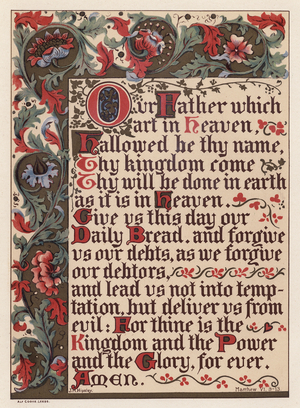 Our Father which
art in Heaven,
Hallowed be thy name,
Thy kingdom come
Thy will be done in earth
as it is in Heaven.
Give us this day our
Daily Bread. and forgive
us our debts, as we forgive
our debtors,
and lead us not into temp-
tation, but deliver us from
evil: For thine is the
Kingdom and the Power
and the Glory, for ever,
Amen.
Matthew VI. 9-13.